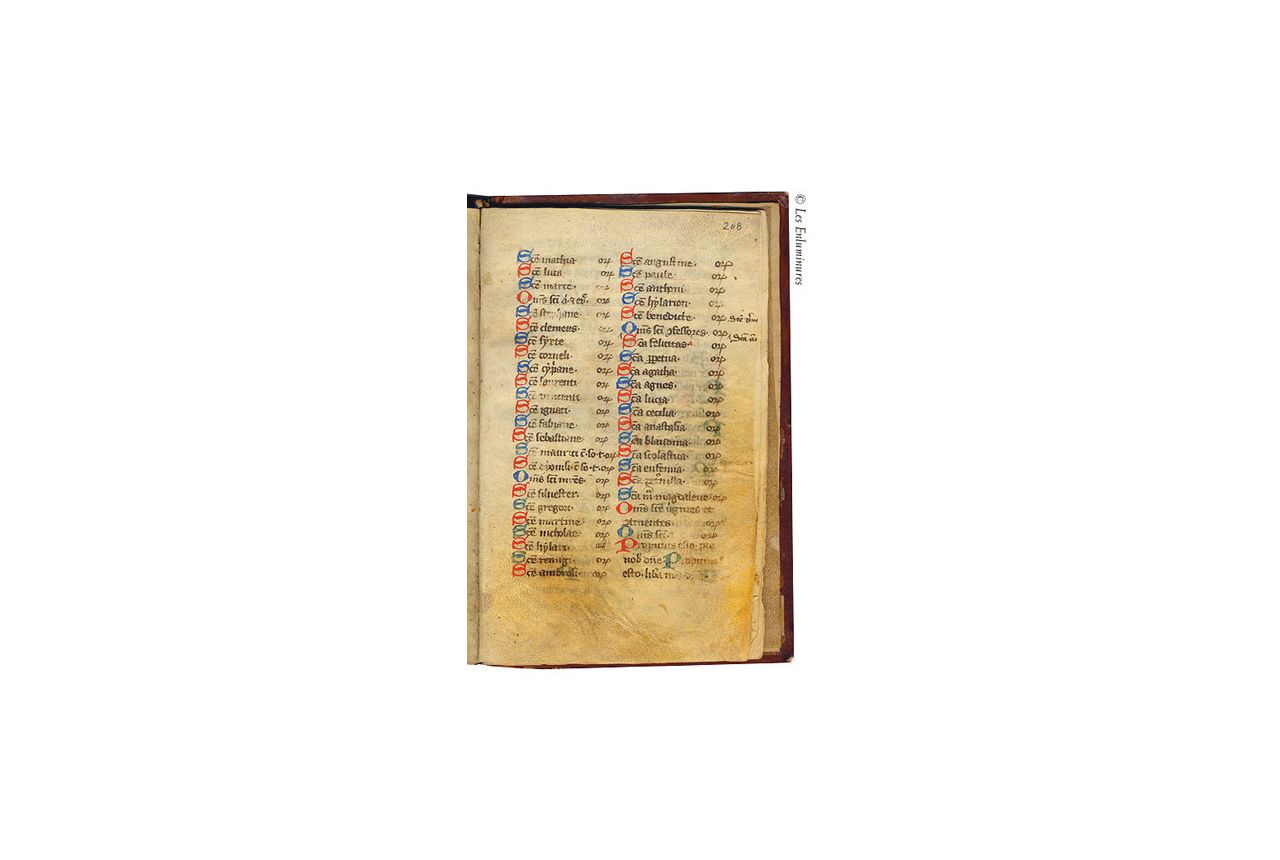 208
Scē mathia. or
Scē luca or
Scē marce. or
Om̄s sc̄i or
Scē stephane or
Scē clemens. or
Scē syxte or
Scē corneli. or
Scē cypane. or
Scē laurenti or
Scē vincenti or
Scē ignati. or
Scē fabiane. or
Scē sebastiane. or
Scē maurici c̄. so. t. or
Scē dyonisi. c̄. so. t. or
Om̄s sc̄i mr̄es. or
Scē siluester. or
Scē gregori. or
Scē martine. or
Scē nicholae. or
Scē hylari. or
Scē remigi or
Scē ambrosi. or
Scē augustine. or
Scē paule. or
Scē anthoni. or
Scē hylarion. or
Scē benedicte. or
Om̄s sc̄i ꝯfessores. or
Sc̄a felicitas. or
Sc̄a ꝑpetua. or
Sc̄a agatha. or
Sc̄a agnes. or
Sc̄a lucia. or
Sc̄a cecilia. or
Sc̄a anastasia. or
Sc̄a blandina. or
Sc̄a scolastica. or
Sc̄a eufemia. or
Sc̄a petronilla. or
Sc̄a m̄ magdalene. or
Om̄s sc̄e uirgines et
ꝯtinentes. or
Om̄s sc̄i. or
Propicius esto. ꝑce
nob̄ dn̄e Propicius
esto. lib̄a nos
© Les Enluminures